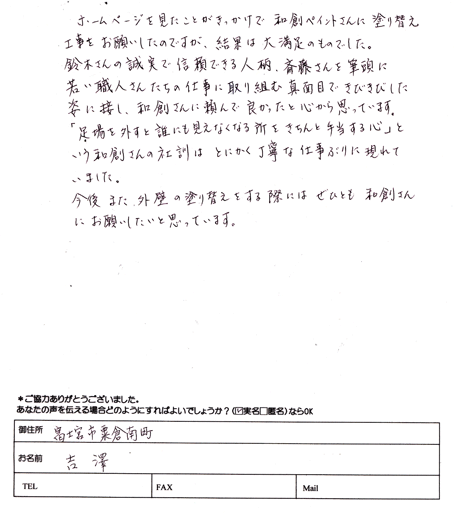 ホームページを見たことがきっかけで 和創ペイントさんに塗り替え
工事をお願いしたのですが、結果は大満足のものでした。
鈴木さんの誠実で信頼できる人柄、斉藤さんを筆頭に
若い職人さんたちの仕事に取り組む真面目できびきびした
姿に接し、和創さんに頼んで良かったと心から思っています。
「足場を外すと誰にも見えなくなる所をきちんと手当する心」と
いう和創さんの社訓は とにかく丁寧な仕事ぶりに現れて
いました。
今後また、外壁の塗り替えをする際には ぜひとも 和創さん
にお願いしたいと思っています。
＊ご協力ありがとうございました。
あなたの声を伝える場合どのようにすればよいでしょうか？(☑実名□匿名)ならOK
御住所 富士宮市粟倉南町
お名前 吉澤
TEL FAX Mail